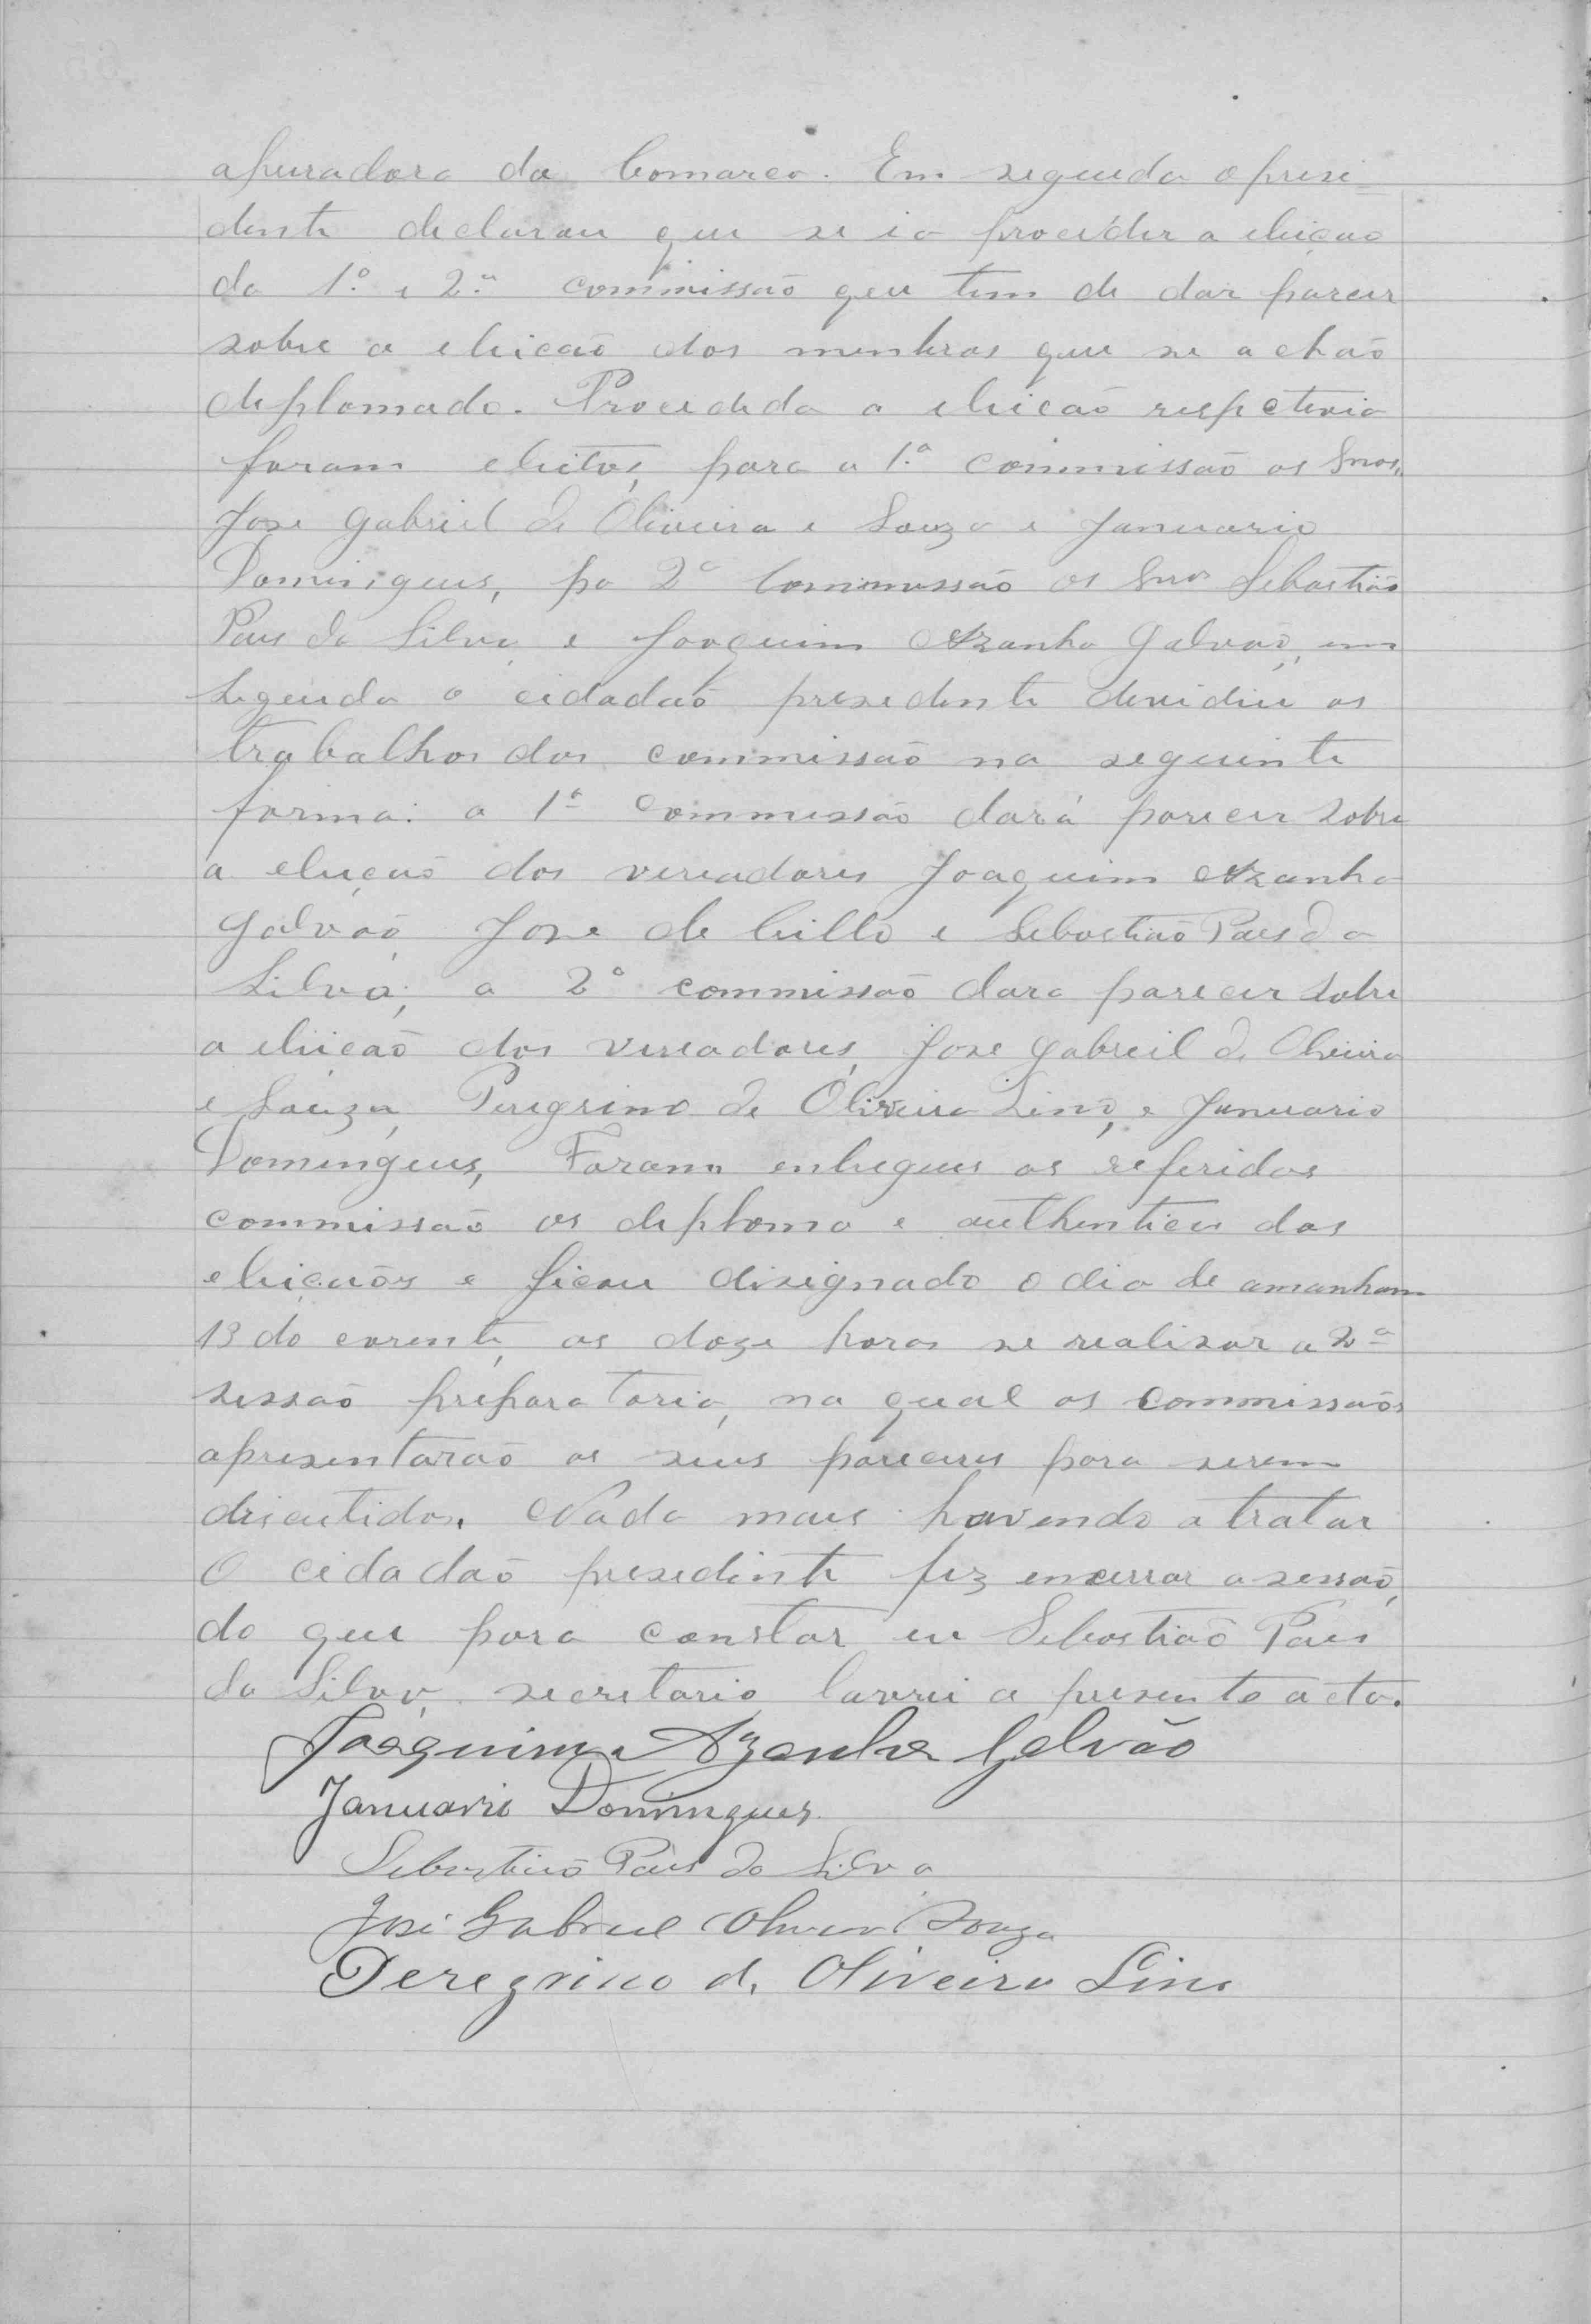 apuradora da Comarca. Em seguida o presi-
dente declarou que se ia proceder a eleição
da 1ª e 2ª commissão que tem de dar parecer
sobre a eleição dos membros que se achão
deplomado. Procedida a eleição respetivia
foram eleitos, para a 1ª commissão os Snos,
Jose Gabriel de Oliveira e Souza e Januario
Domingues, pa 2ª Commissão os Snos Sebastião
Paes da Silva e Joaquim Azanha Galvão, em
seguida o cidadão presedente devidiu os
trabalhos das commissão na seguinte
forma: a 1ª Commessão dará parecer sobre
a eleição dos vereadores Joaquim Azanha
Galvão, Jose de Lillo e Sebastião Paes da
Silva, a 2ª commissão dara parecer sobre
a eleição dos vereadores, Jose Gabreil de Oliveira
e Souza, Peregrino de Oliveira Lino, e Januario
Domingues, Foram entregues as referidas
commissão os deploma e authenticas das
eleições e ficou disignado o dia de amanham
13 do corente, as doze horas se realisar a 2ª
sessão preparatoria, na qual as commissaõs
apresentarão os seus pareceres para serem
discutidos. Nada mais havendo a tratar
O cidadão presedente fez encerrar a sessão,
do que para constar eu Sebastião Paes
da Silva, secretario, lavrei a presente acta.
Joaquim Azanha Galvão
Januario Domingues
Sebastião Paes da Silva
José Gabriel Oliveira Souza
Peregrino d. Oliveira Lino